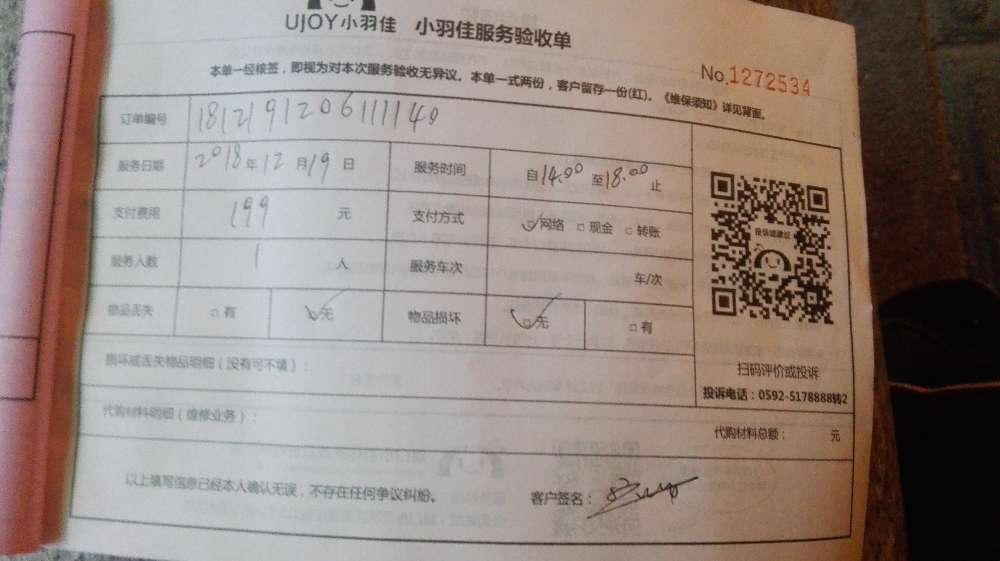 UJOY小羽佳 小羽佳服务验收单
No.1272534
本单一经核签，即视为对本次服务验收无异议。本单一式两份，客户留存一份(红)。《维保须知》详见背面。
订单编号 181219120611140
服务日期 2018年12月19日 服务时间 自14:00至18:00止
支付费用 199 元 支付方式 ☑网络 □现金 □转账
服务人数 1 人 服务车次 车/次
物品丢失 □有 ☑无 物品损坏 ☑无 □有
投诉或建议
扫码评价或投诉
投诉电话：0592-5178888转2
损坏或丢失物品明细（没有可不填）：
代购材料明细（维修业务）： 代购材料总额： 元
以上填写信息已经本人确认无误，不存在任何争议纠纷。 客户签名：